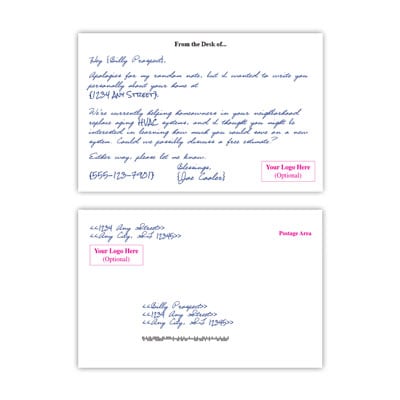 From the Desk of...
Hey {Billy Prospect},
Apologies for my random note, but I wanted to write you
personally about your home at
{1234 Any Street}.
We're currently helping homeowners in your neighborhood
replace aging HVAC systems, and I thought you might be
interested in learning how much you could save on a new
system. Could we possibly discuss a free estimate?
Either way, please let me know.
Blessings,
{555-123-7901}
{Joe Cooler}
Your Logo Here
(Optional)
<<1234 Any Street>>
<<Any City, ST 12345>>
Postage Area
Your Logo Here
(Optional)
<<Billy Prospect>>
<<1234 Any Street>>
<<Any City, ST 12345>>